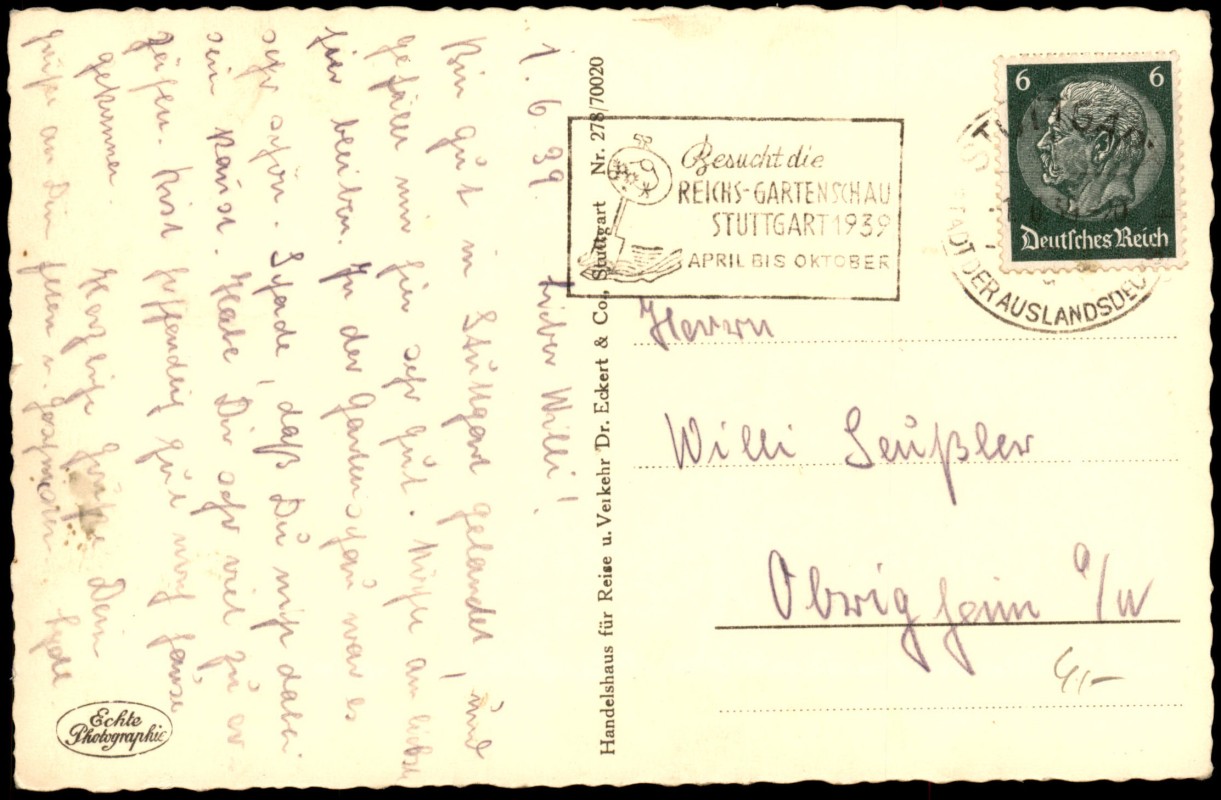 1. 6. 39.
Lieber Willi!
Bin gut in Stuttgart gelandet, und
gefällt mir hier sehr gut. Möchte am liebst
hier bleiben. In der Gartenschau war es
sehr schön. Schade, daß Du nicht dabei
sein kannst. Habe Dir sehr viel zu er
zählen. Bist hoffendlich gut nach Hause
gekommen. Herzliche Grüße Dein
Grüße an Dein u. Geschwister.
Besucht die
REICHS-GARTENSCHAU
STUTTGART 1939
APRIL BIS OKTOBER
6 6
Deutsches Reich
STUTTGART
STADT DER AUSLANDSDEU
Herrn
Willi Seußler
Obrigheim a/N
4,-
Handelshaus für Reise u. Verkehr Dr. Eckert & Co., Stuttgart Nr. 278/70020
Echte
Photographie